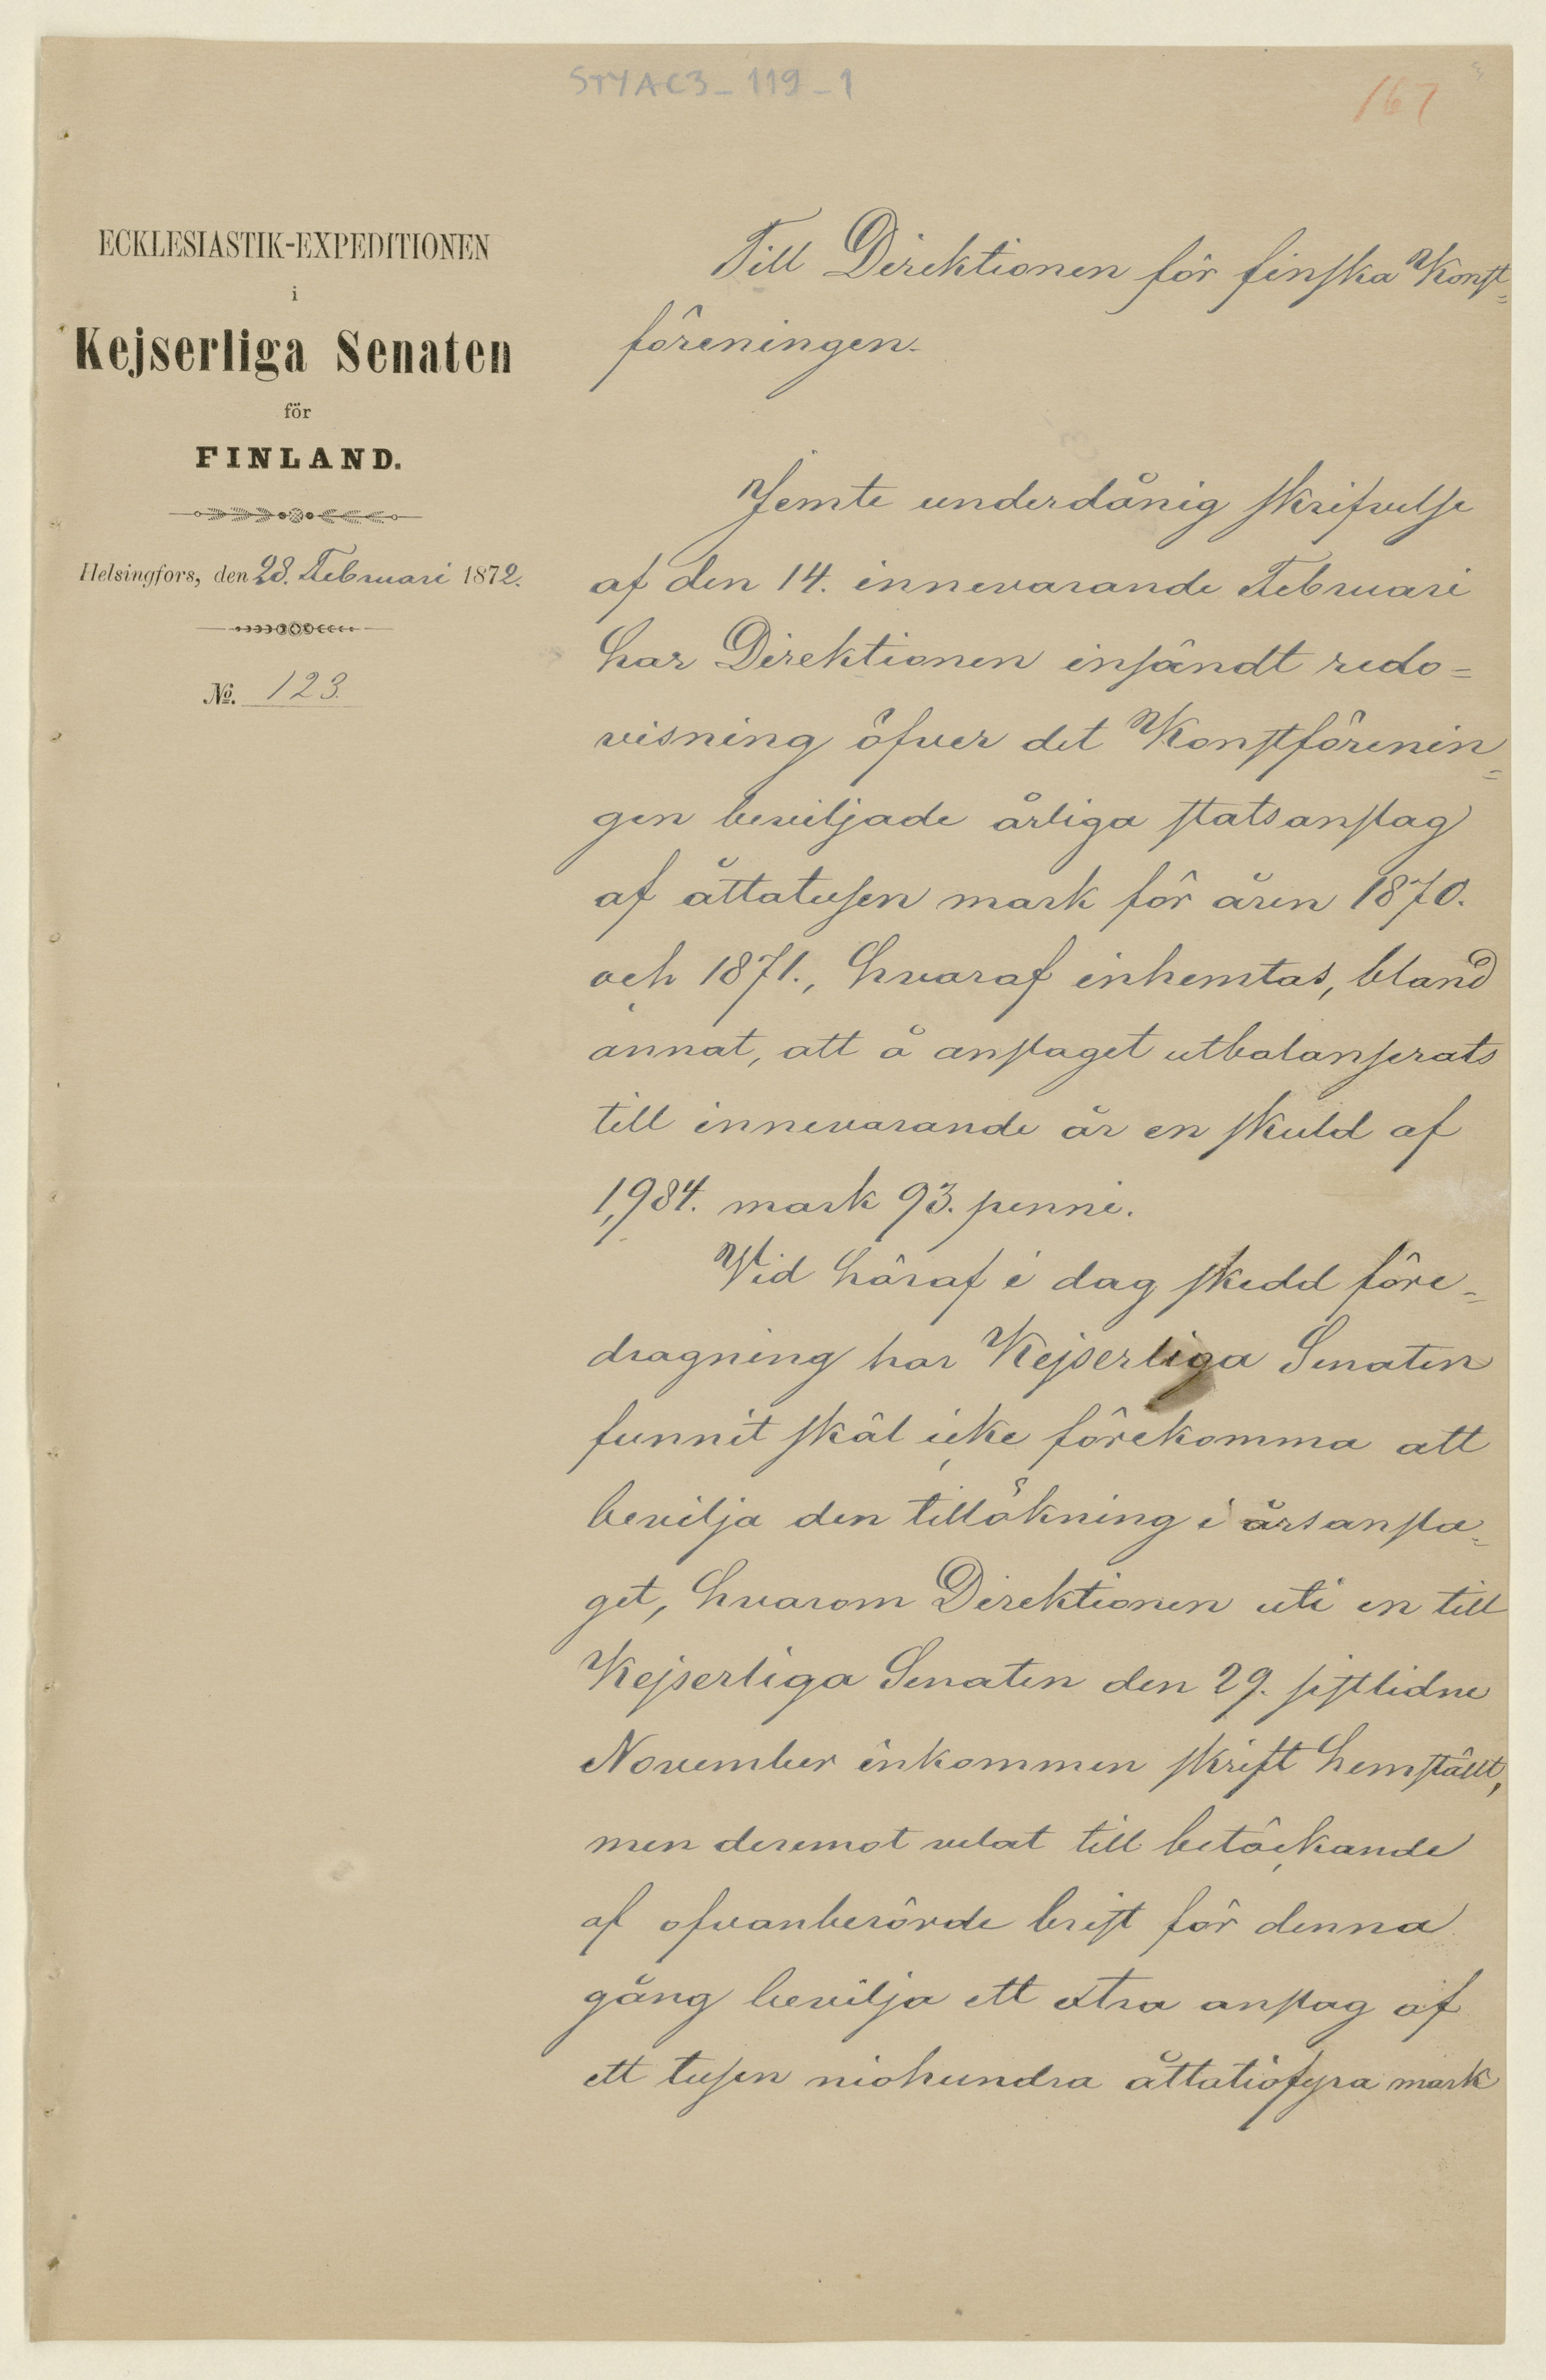 STYAC3_119_1
167
ECKLESIASTIK-EXPEDITIONEN
i
Kejserliga Senaten
för
FINLAND.
Helsingfors, den 28. Februari 1872.
No. 123.
Till Direktionen för finska Konst=
föreningen.
Jemte underdånig skrifvelse
af den 14. innevarande Februari
har Direktionen insändt redo=
visning öfver det Konstförenin=
gen beviljade årliga statsanslag
af åttatusen mark för åren 1870.
och 1871., hvaraf inhemtas, bland
annat, att å anslaget utbalanserats
till innevarande år en skuld af
1,984. mark 93. penni.
Vid häraf i dag skedd före=
dragning har Kejserliga Senaten
funnit skäl icke förekomma att
bevilja den tillökning i årsansla=
get, hvarom Direktionen uti en till
Kejserliga Senaten den 29. sistlidne
November inkommen skrift hemställt,
men deremot velat till betäckande
af ofvanberörde brist för denna
gång bevilja ett extra anslag af
ett tusen niohundra åttatiofyra mark